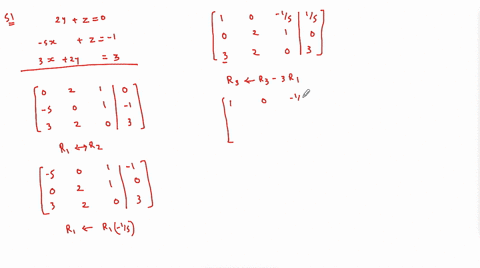 S1
2y + z = 0
-5x + z = -1
3x + 2y = 3
0 2 1 | 0
-5 0 1 | -1
3 2 0 | 3
R1 ↔ R2
-5 0 1 | -1
0 2 1 | 0
3 2 0 | 3
R1 ← R1(-1/5)
1 0 -1/5 | 1/5
0 2 1 | 0
3 2 0 | 3
R3 ← R3 - 3R1
1 0 -1/